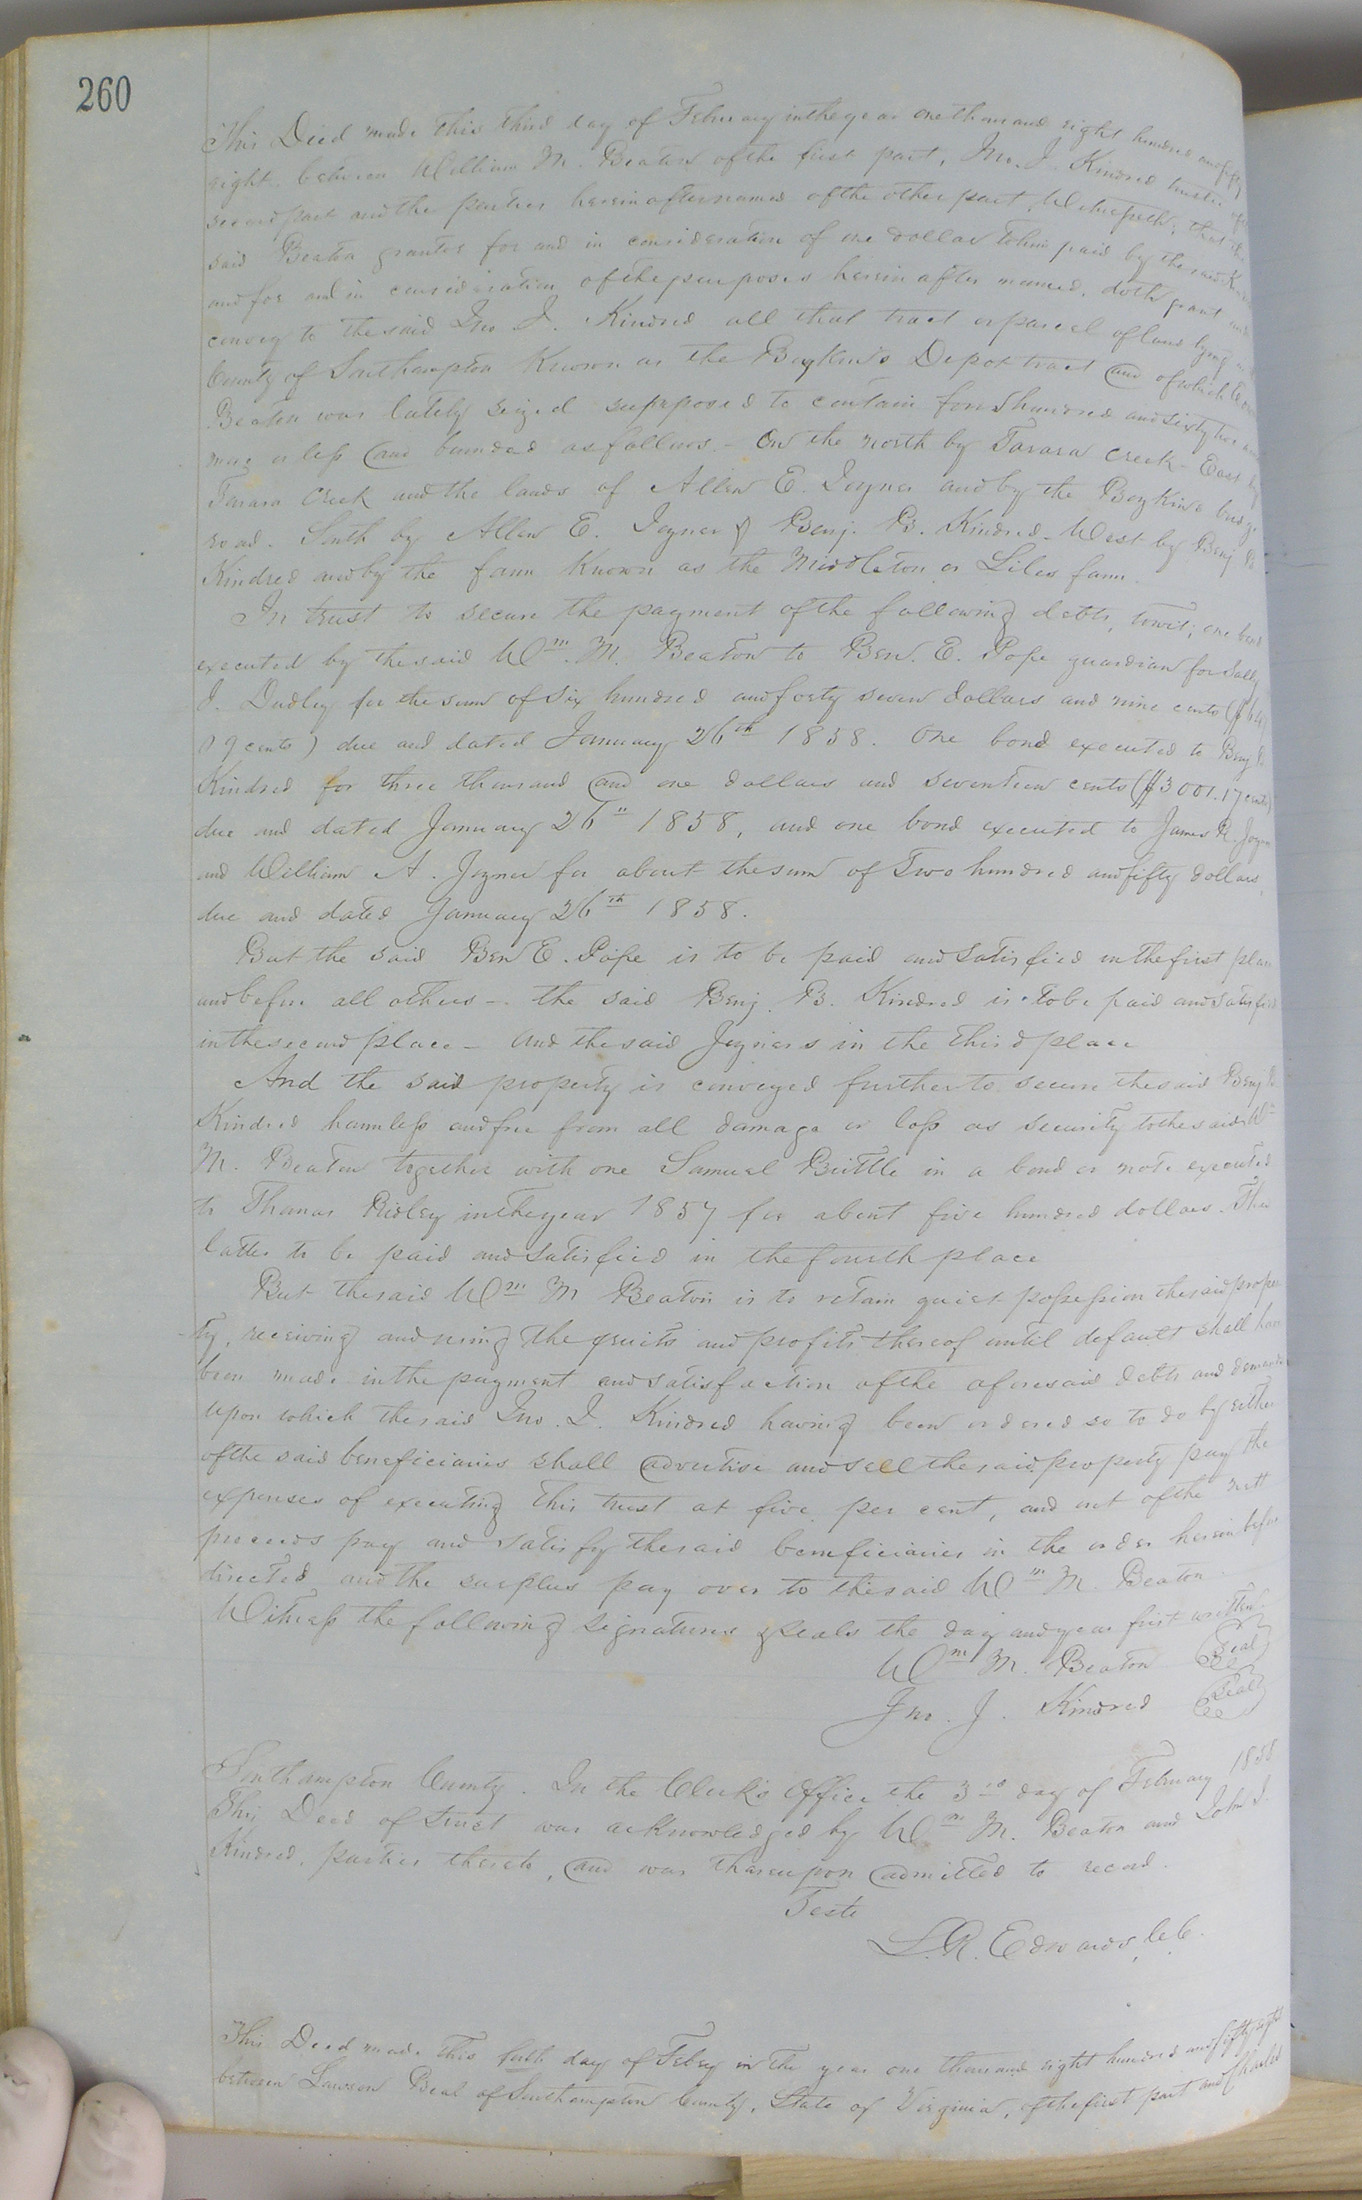 260
This Deed made this third day of February in the year one thousand eight hundred and fifty
eight between William M. Beaton of the first part, Jno. J. Kindred trustee of the
second part and the parties hereinafter named of the other part, Witnesseth; that the
said Beaton grantor for and in consideration of one dollar to him paid by the said Kindred
and for and in consideration of the purposes herein after named, doth grant and
convey to the said Jno J. Kindred all that tract or parcel of land lying in
County of Southampton Known as the Boykin's Depot tract and of which
Beaton was lately seized supposed to contain four hundred and sixty two acres
more or less and bounded as follows - On the north by Tarara Creek - East by
Tarara Creek and the lands of Allen E. Joyner and by the Boykins bridge
road. South by Allen E. Joyner & Benj. B. Kindred - West by Benj B.
Kindred and by the farm known as the Middleton or Liles farm.
In trust to secure the payment of the following debts, towit; one bond
executed by the said Wm. M. Beaton to Ben. E. Pope guardian for Sally
J. Dudley for the sum of six hundred and forty seven dollars and nine cents ($647
09 cents) due and dated January 26th 1858. One bond executed to Benj B.
Kindred for three thousand and one dollars and seventeen cents ($3001.17 cents)
due and dated January 26th 1858, and one bond executed to James R. Joyner
and William A. Joyner for about the sum of Two hundred and fifty dollars,
due and dated January 26th 1858.
But the said Ben E. Pope is to be paid and satisfied in the first place
and before all others - the said Benj. B. Kindred is to be paid and satisfied
in the second place - and the said Joyners in the third place
And the said property is conveyed further to secure the said Benj B.
Kindred harmless and free from all damage or loss as security to the said Wm
M. Beaton together with one Samuel Brittle in a bond or note executed
to Thomas Ridley in the year 1857 for about five hundred dollars. The
latter to be paid and satisfied in the fourth place
But the said Wm M Beaton is to retain quiet possession the said proper
ty, receiving and using the fruits and profits thereof until default shall have
been made in the payment and satisfaction of the aforesaid debts and demands
upon which the said Jno. J. Kindred having been ordered so to do by either
of the said beneficiaries shall advertise and sell the said property pay the
expenses of executing this trust at five per cent, and out of the nett
proceeds pay and satisfy the said beneficiaries in the order herein before
directed and the surplus pay over to the said Wm M. Beaton.
Witness the following signatures & seals the day and year first written.
Wm M. Beaton Seal
Jno. J. Kindred Seal
Southampton County. In the Clerk's Office the 3rd day of February 1858
This Deed of trust was acknowledged by Wm M. Beaton and John J.
Kindred, parties thereto, and was thereupon admitted to record.
Teste
L. R. Edwards, C.C.
This Deed made this day of Feby in the year one thousand eight hundred and fifty eight
between Lawson Beal of Southampton County, State of Virginia, of the first part and Charles